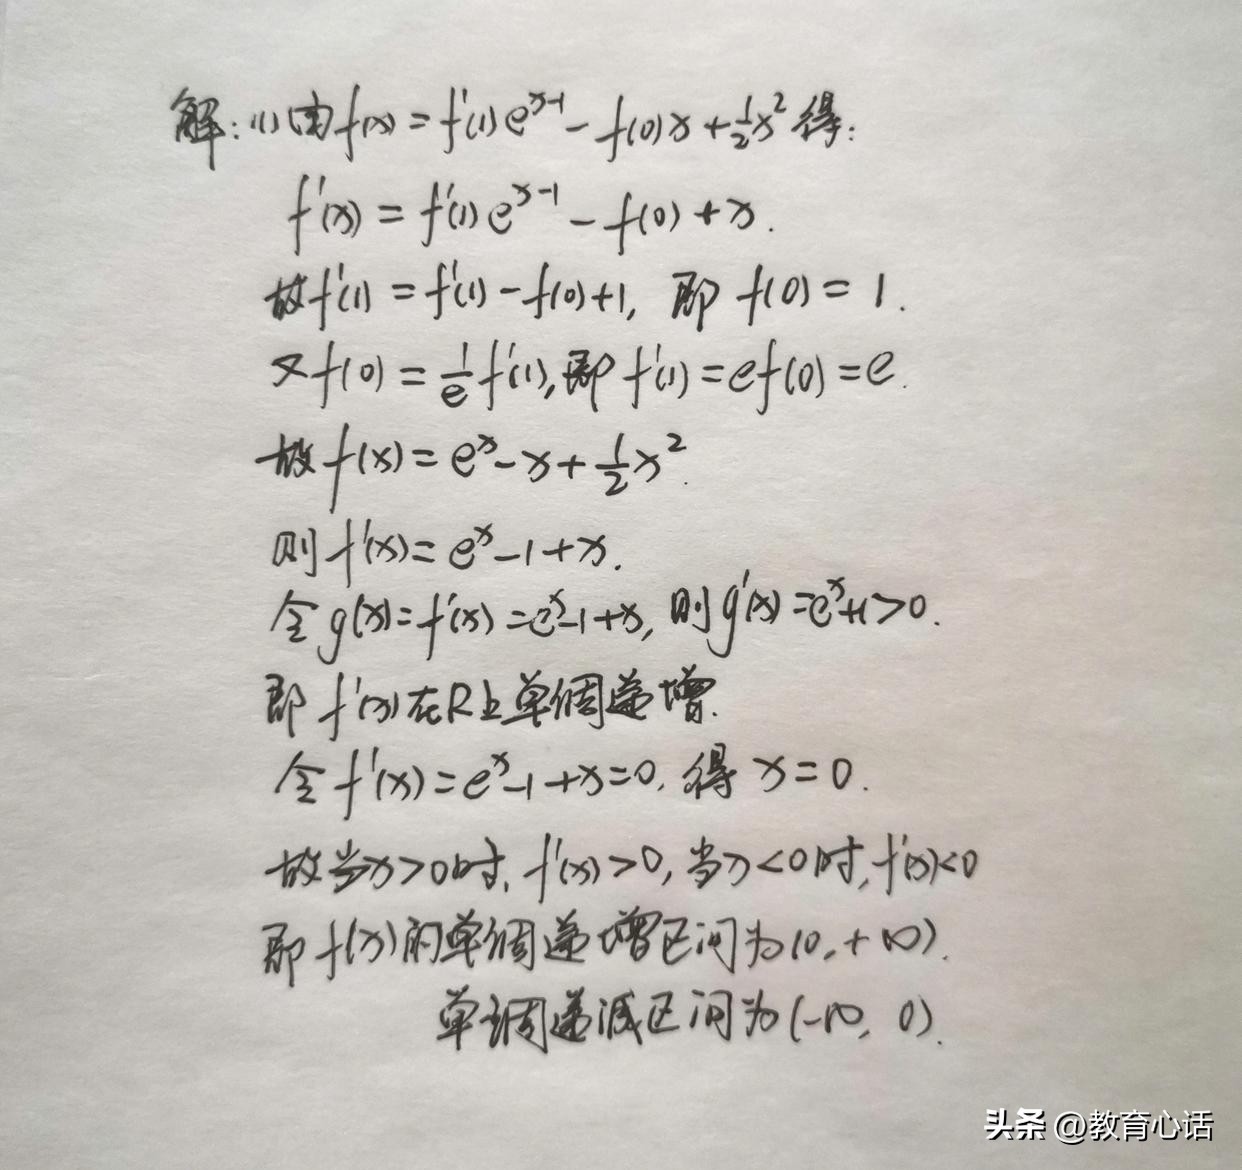 解:(1)由f(x)=f'(1)e^{x-1}-f(0)x+\frac{1}{2}x^2得:
f'(x)=f'(1)e^{x-1}-f(0)+x.
故f'(1)=f'(1)-f(0)+1, 即 f(0)=1.
又f(0)=\frac{1}{e}f'(1),即 f'(1)=ef(0)=e.
故f(x)=e^x-x+\frac{1}{2}x^2.
则f'(x)=e^x-1+x.
令g(x)=f'(x)=e^x-1+x, 则g'(x)=e^x+1>0.
即f'(x)在R上单调递增.
令f'(x)=e^x-1+x=0, 得 x=0.
故当x>0时, f'(x)>0, 当x<0时, f'(x)<0
即f(x)的单调递增区间为(0,+∞).
单调递减区间为(-∞, 0).
头条 @教育心话